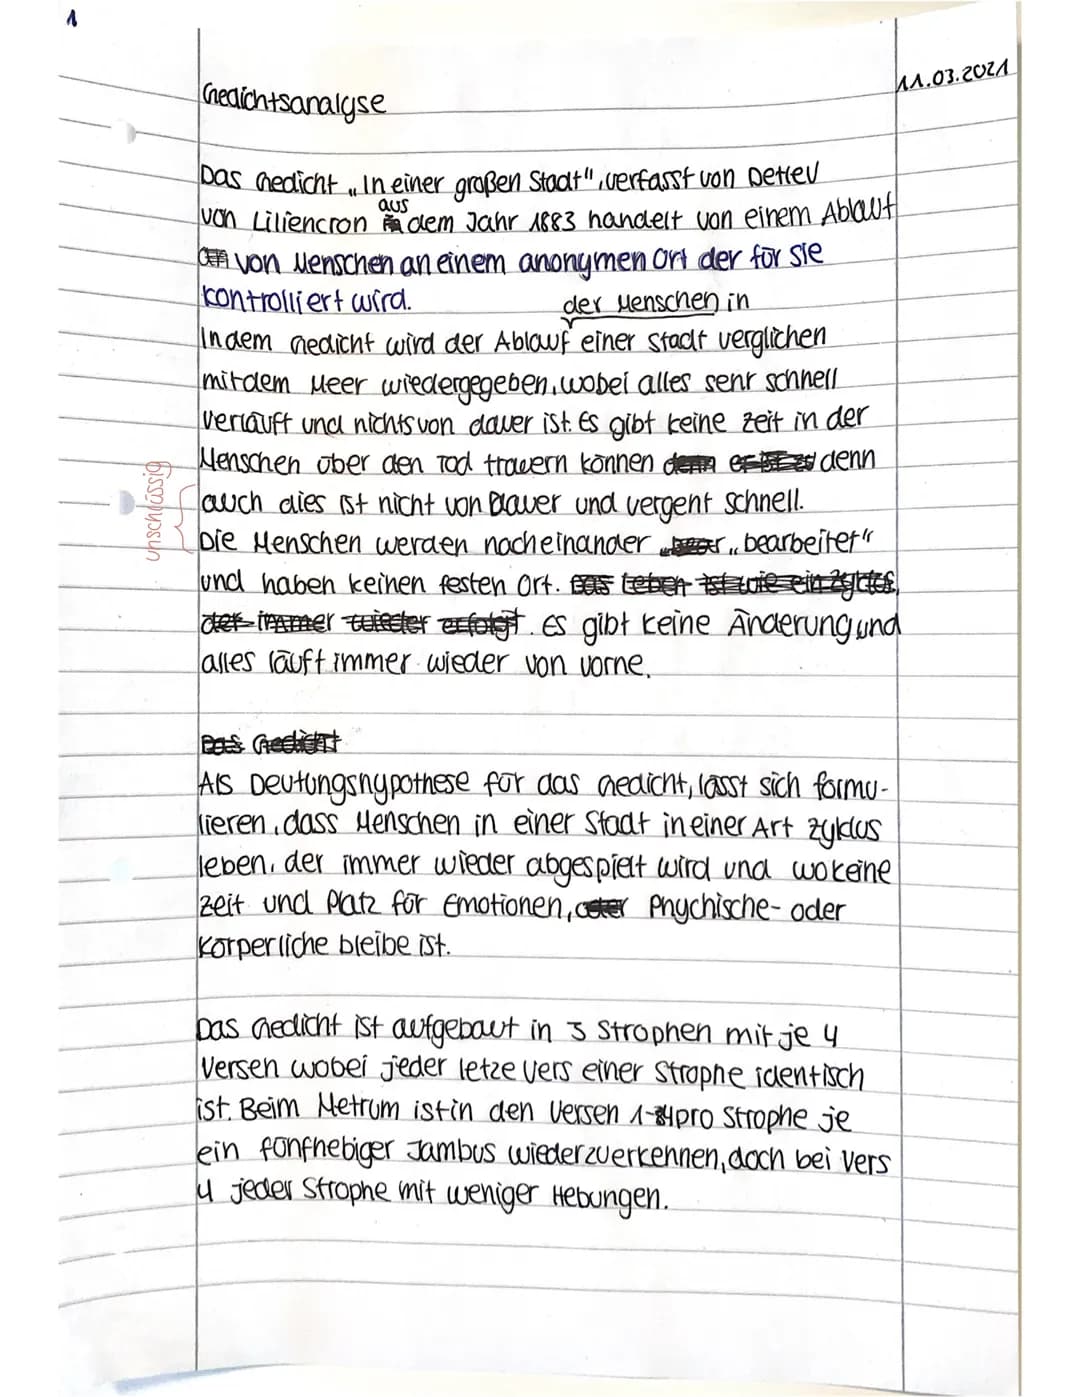 1
11.03.2021
Gedichtsanalyse
Das Gedicht „In einer großen Stadt", verfasst von Detlev
aus
von Liliencron dem Jahr 1883 handelt von einem Ablauf
von Menschen an einem anonymen Ort der für sie
kontrolliert wird.
der Menschen in
In dem Gedicht wird der Ablauf einer Stadt verglichen
mit dem Meer wiedergegeben, wobei alles sehr schnell
verläuft und nichts von dauer ist. Es gibt keine Zeit in der
Menschen über den Tod trauern können denn denn
auch dies ist nicht von Dauer und vergeht schnell.
unschlüssig
Die Menschen werden nacheinander „bearbeitet"
und haben keinen festen Ort. Das Leben ist wie ein Zyklus,
der immer wieder erfolgt. Es gibt keine Änderung und
alles läuft immer wieder von vorne.
Das Gedicht
Als Deutungshypothese für das Gedicht, lässt sich formu-
lieren, dass Menschen in einer Stadt in einer Art Zyklus
leben, der immer wieder abgespielt wird und wo keine
Zeit und Platz für Emotionen, oder Phychische- oder
Körperliche bleibe ist.
Das Gedicht ist aufgebaut in 3 Strophen mit je 4
Versen wobei jeder letze Vers einer Strophe identisch
ist. Beim Metrum ist in den Versen 1-4 pro Strophe je
ein fünfhebiger Jambus wiederzuerkennen, doch bei Vers
4 jeder Strophe mit weniger Hebungen.